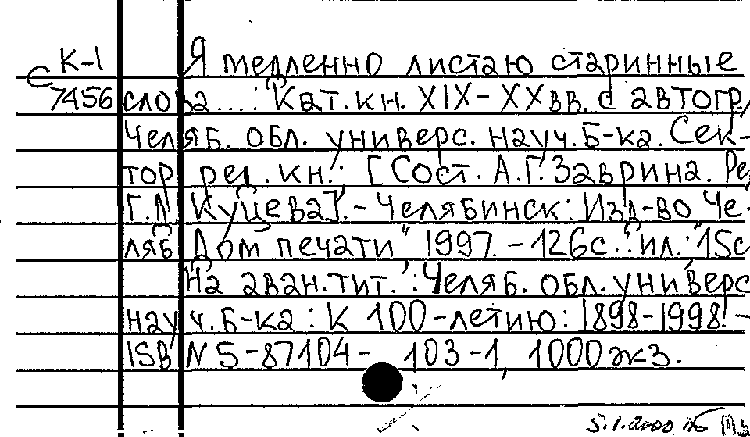 К-1 Я медленно листаю старинные
С 7456 слова...: Кат. кн. XIX-XX вв. с автогр.
Челяб. обл. универс. науч. б-ка. Сек-
тор ред. кн.: [Сост. А.Г. Заврина. Ре
Г.М Куцева]. - Челябинск: Изд-во Че-
ляб Дом печати" 1997. - 126с.: ил.; 15с
На аван. тит.: Челяб. обл. универс
науч. б-ка: К 100-летию: 1898-1998. -
ISBN 5-87104-103-1, 1000 экз.
5.1.2000